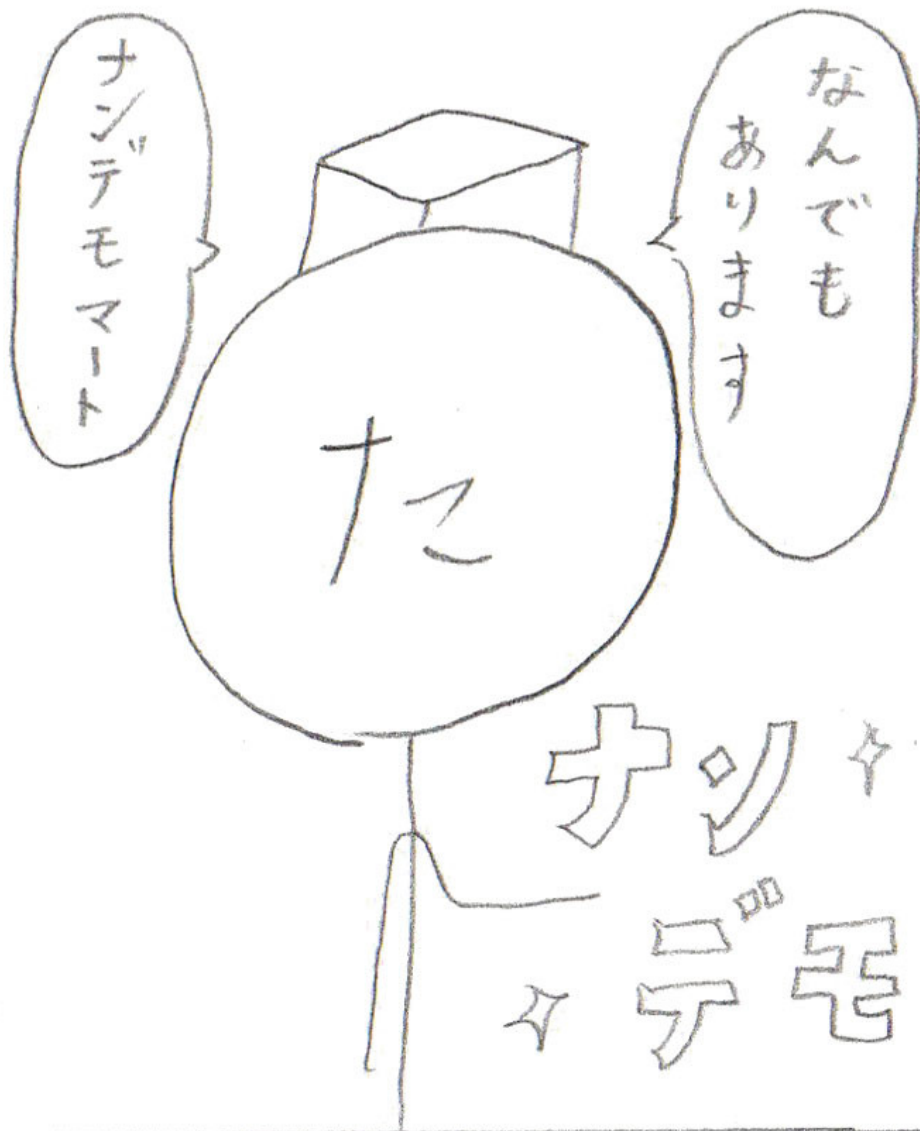 なんでも
あります
ナンデモマート
た
ナン
デモ